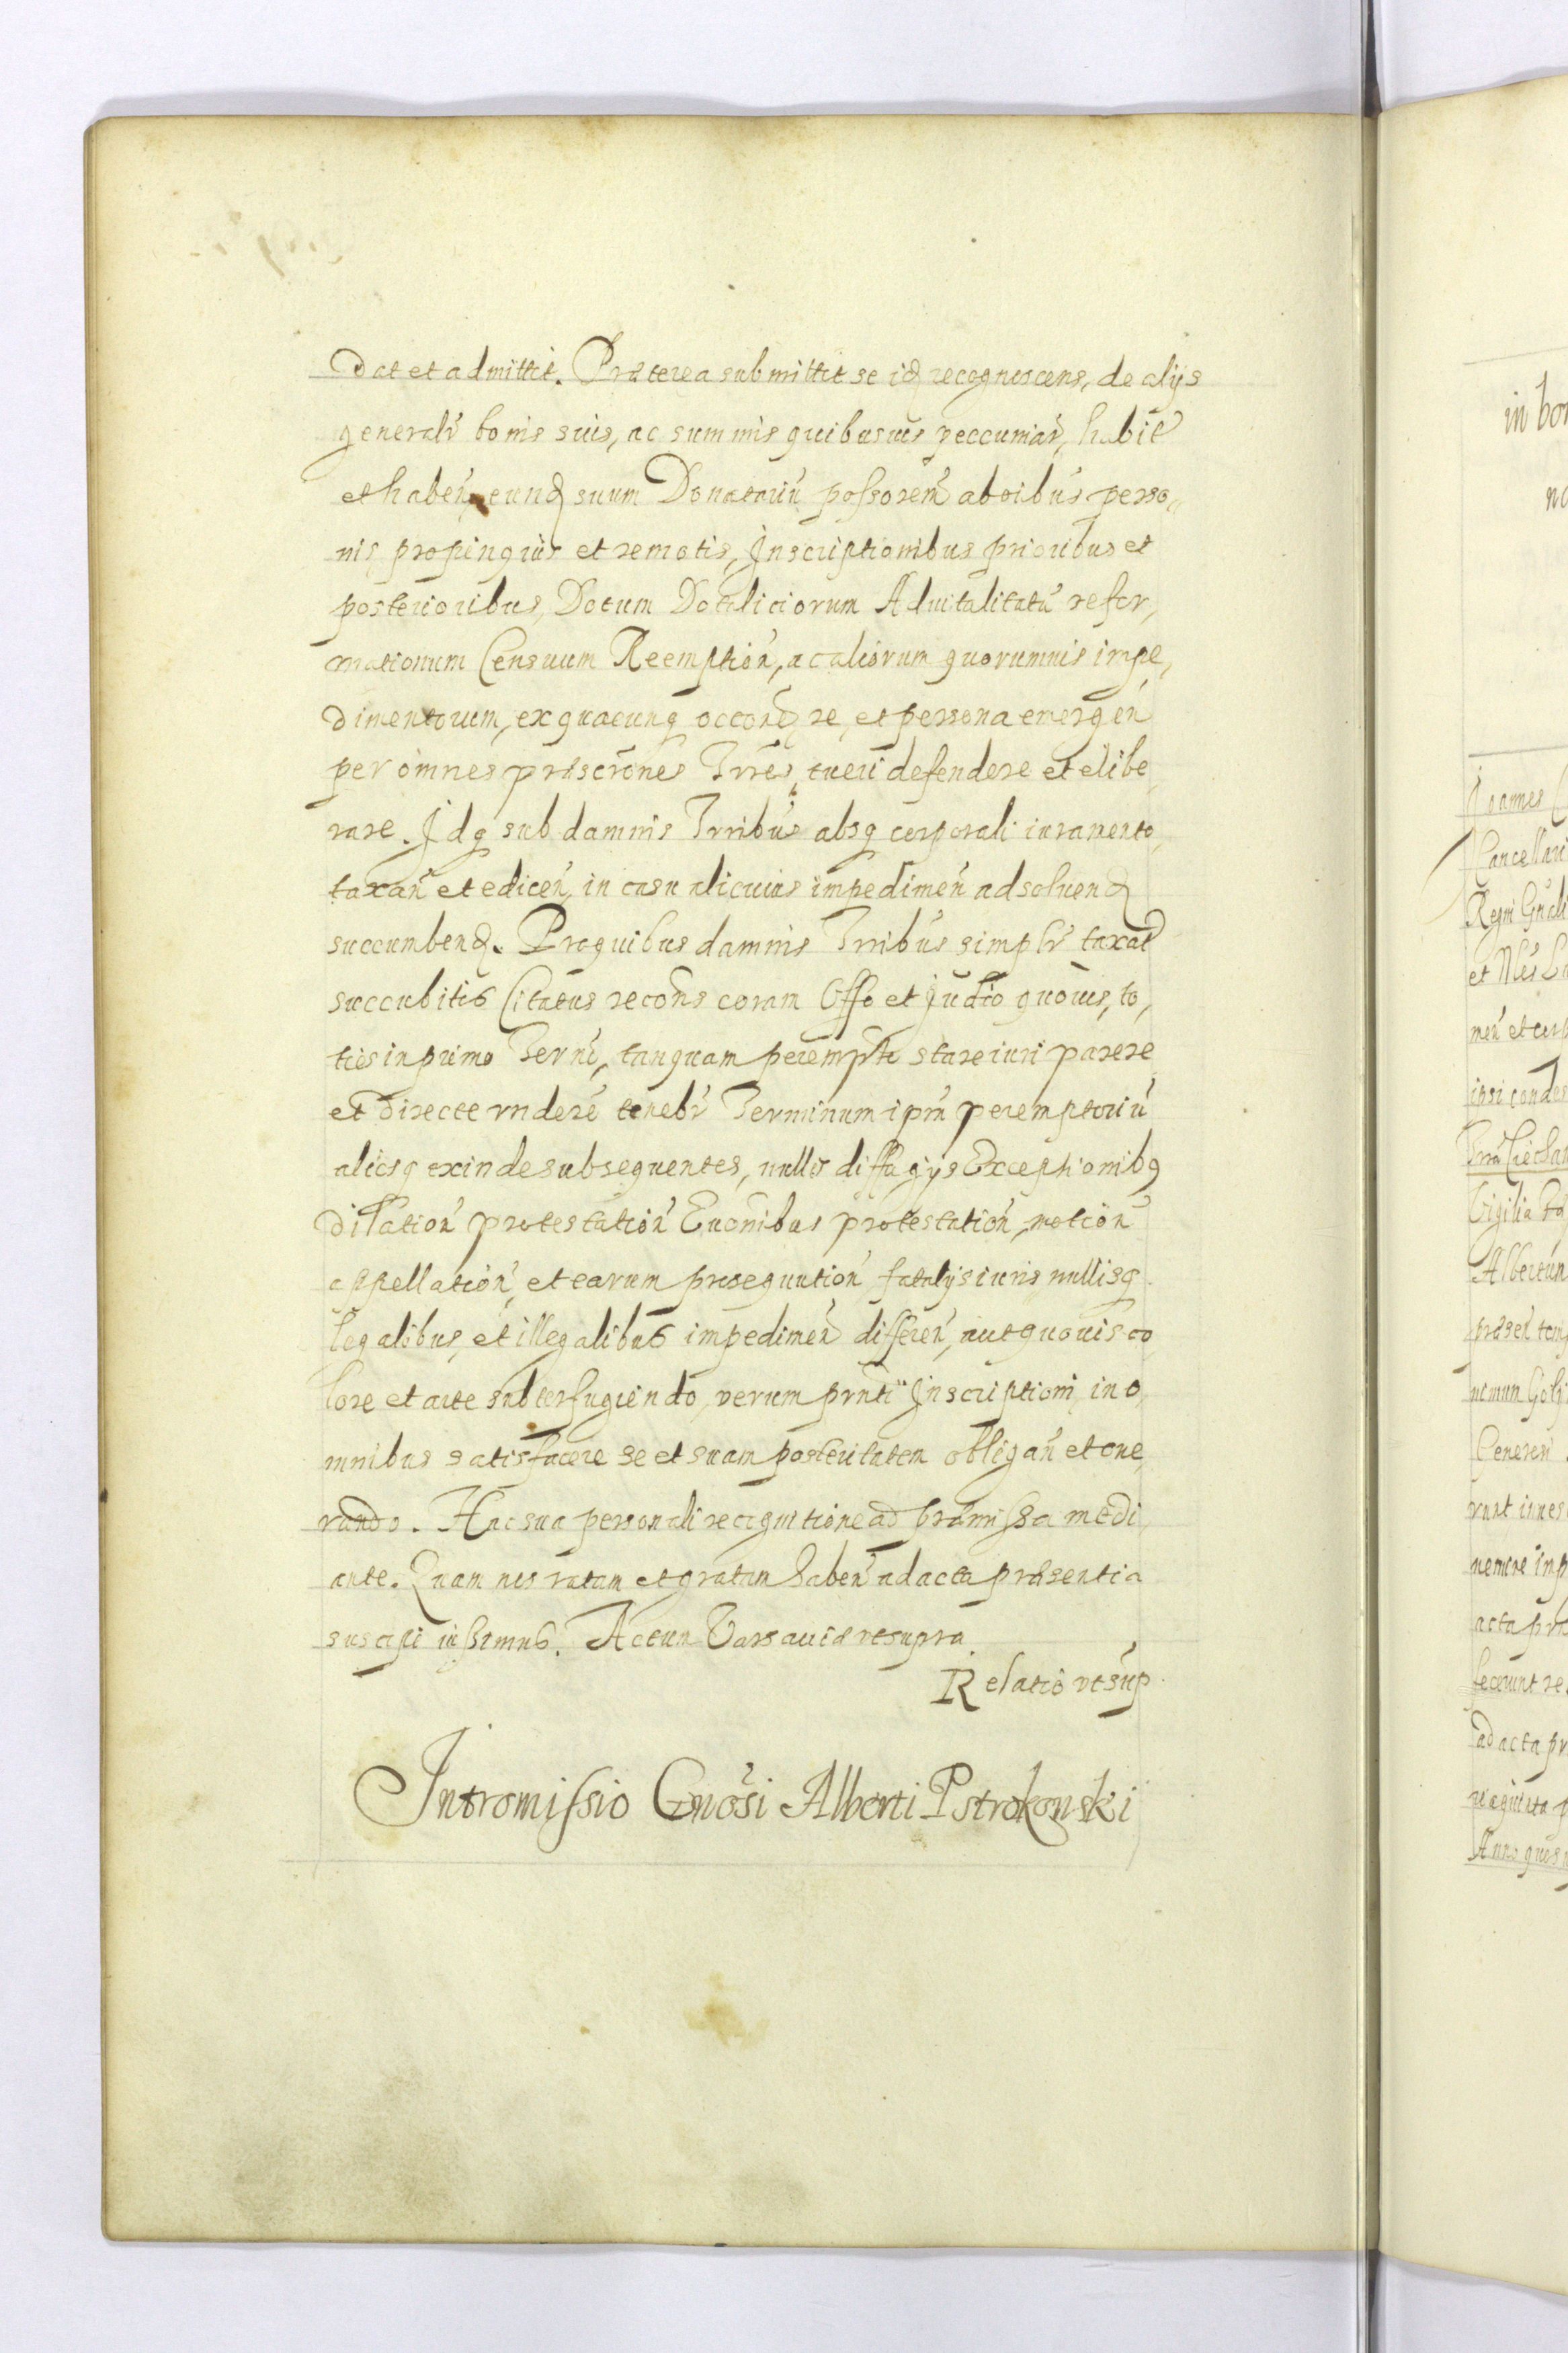 Dat et admittit. Præterea submittit se idq recognoscens, de alijs
generalr̃ bonis suis, ac summis quibusuis peccuniar̃, habit̃
et habeñ, eundq suum Donatariũ possorem̃ ab oibus perso„
nis propinquis et remotis, Inscriptionibus prioribus et
posterioribus, Dotum Dotaliciorum Aduitalitatũ refor,
mationum Censuum Reemptioñ, ac aliorum quorumuis impe,
dimentorum, ex quacunq occoñe, re, et persona emergeñ
per omnes præscr̃ones Trr̃es, tueri defendere et elibe
rare. Idq sub damnis Trribus absq corporali iuramento
taxañ et ediceñ, in casu alicuius impedimeñ ad soluendq
succumbendq. Pro quibus damnis Trribus simplr̃ taxat̃
succubitis Citatus recoñs coram Offo et Judiõ quouis, to,
ties in primo Termĩ, tanquam perempt̃ stare iuri parere
et directe rndere tenebr̃ Terminum ipm̃ peremptoriũ
aliosq exinde subsequentes, nullis diffugijs Exceptionibq
dilatioñ protestatioñ Euoñibus protestatioñ, motioñ
appellatioñ, et earum prosequutioñ fatalijs iuris nullisq
legalibus, et illegalibus impedimeñ differeñ, aut quouis co
lore et arte subterfugiendo, verum prñti Inscriptioni, in o,
mnibus satisfacere se et suam posteritatem obligañ et one,
rando. Hac sua personali recognitione ad præmissa medi
ante. Quam nos ratam et gratam habeñ ad acta præsentia
suscipi iussimus. Actum Varsauiæ vt supra
Relatio vt sup.
Intromissio Gnosi Alberti Pstrokonski
in bon
no
Joannes C
Cancellari
Regni Gnali
men̄ et
ipsi
Vigilia
Albertum
præseñ
acta præ
fecerunt re
ad acta pr